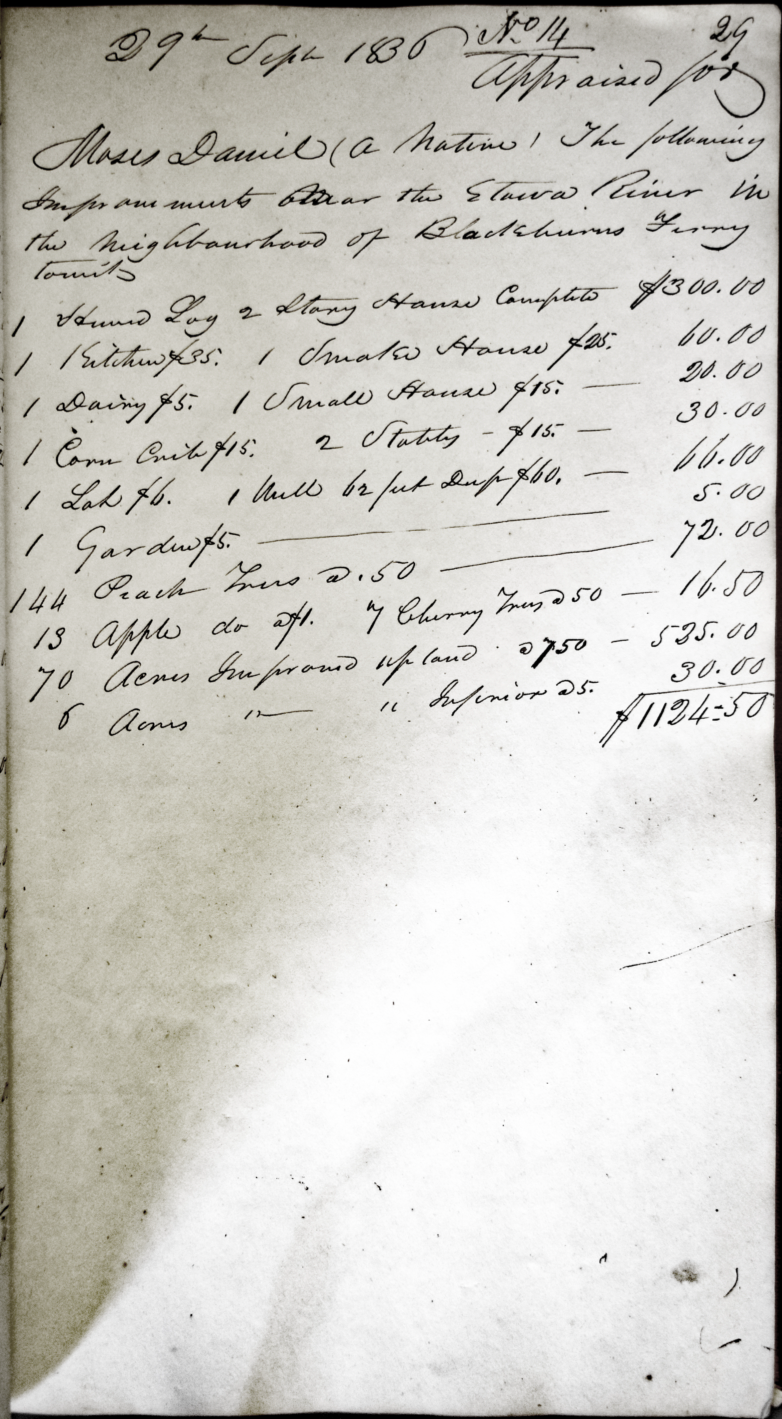 29th Sept 1836 No 14 29
Appraised for
Moses Daniel (a Native) The following
Improvements near the Etowa River in
the Neighbourhood of Blackburns Ferry
towit
1 Hewed Log 2 Story House Complete $300.00
1 Kitchen $35. 1 Smoke House $25. 60.00
1 Dairy $5. 1 Small House $15. — 20.00
1 Corn Crib $15. 2 Stables - $15 — 30.00
1 Lot $6. 1 Well 62 feet Deep $60. — 66.00
1 Garden $5. — 5.00
144 Peach Trees @ .50 — 72.00
13 Apple do @ $1. 7 Cherry Trees @ 50 — 16.50
70 Acres Improved upland @ 7.50 — 525.00
6 Acres " " Inferior @ 5. 30.00
$1124=50